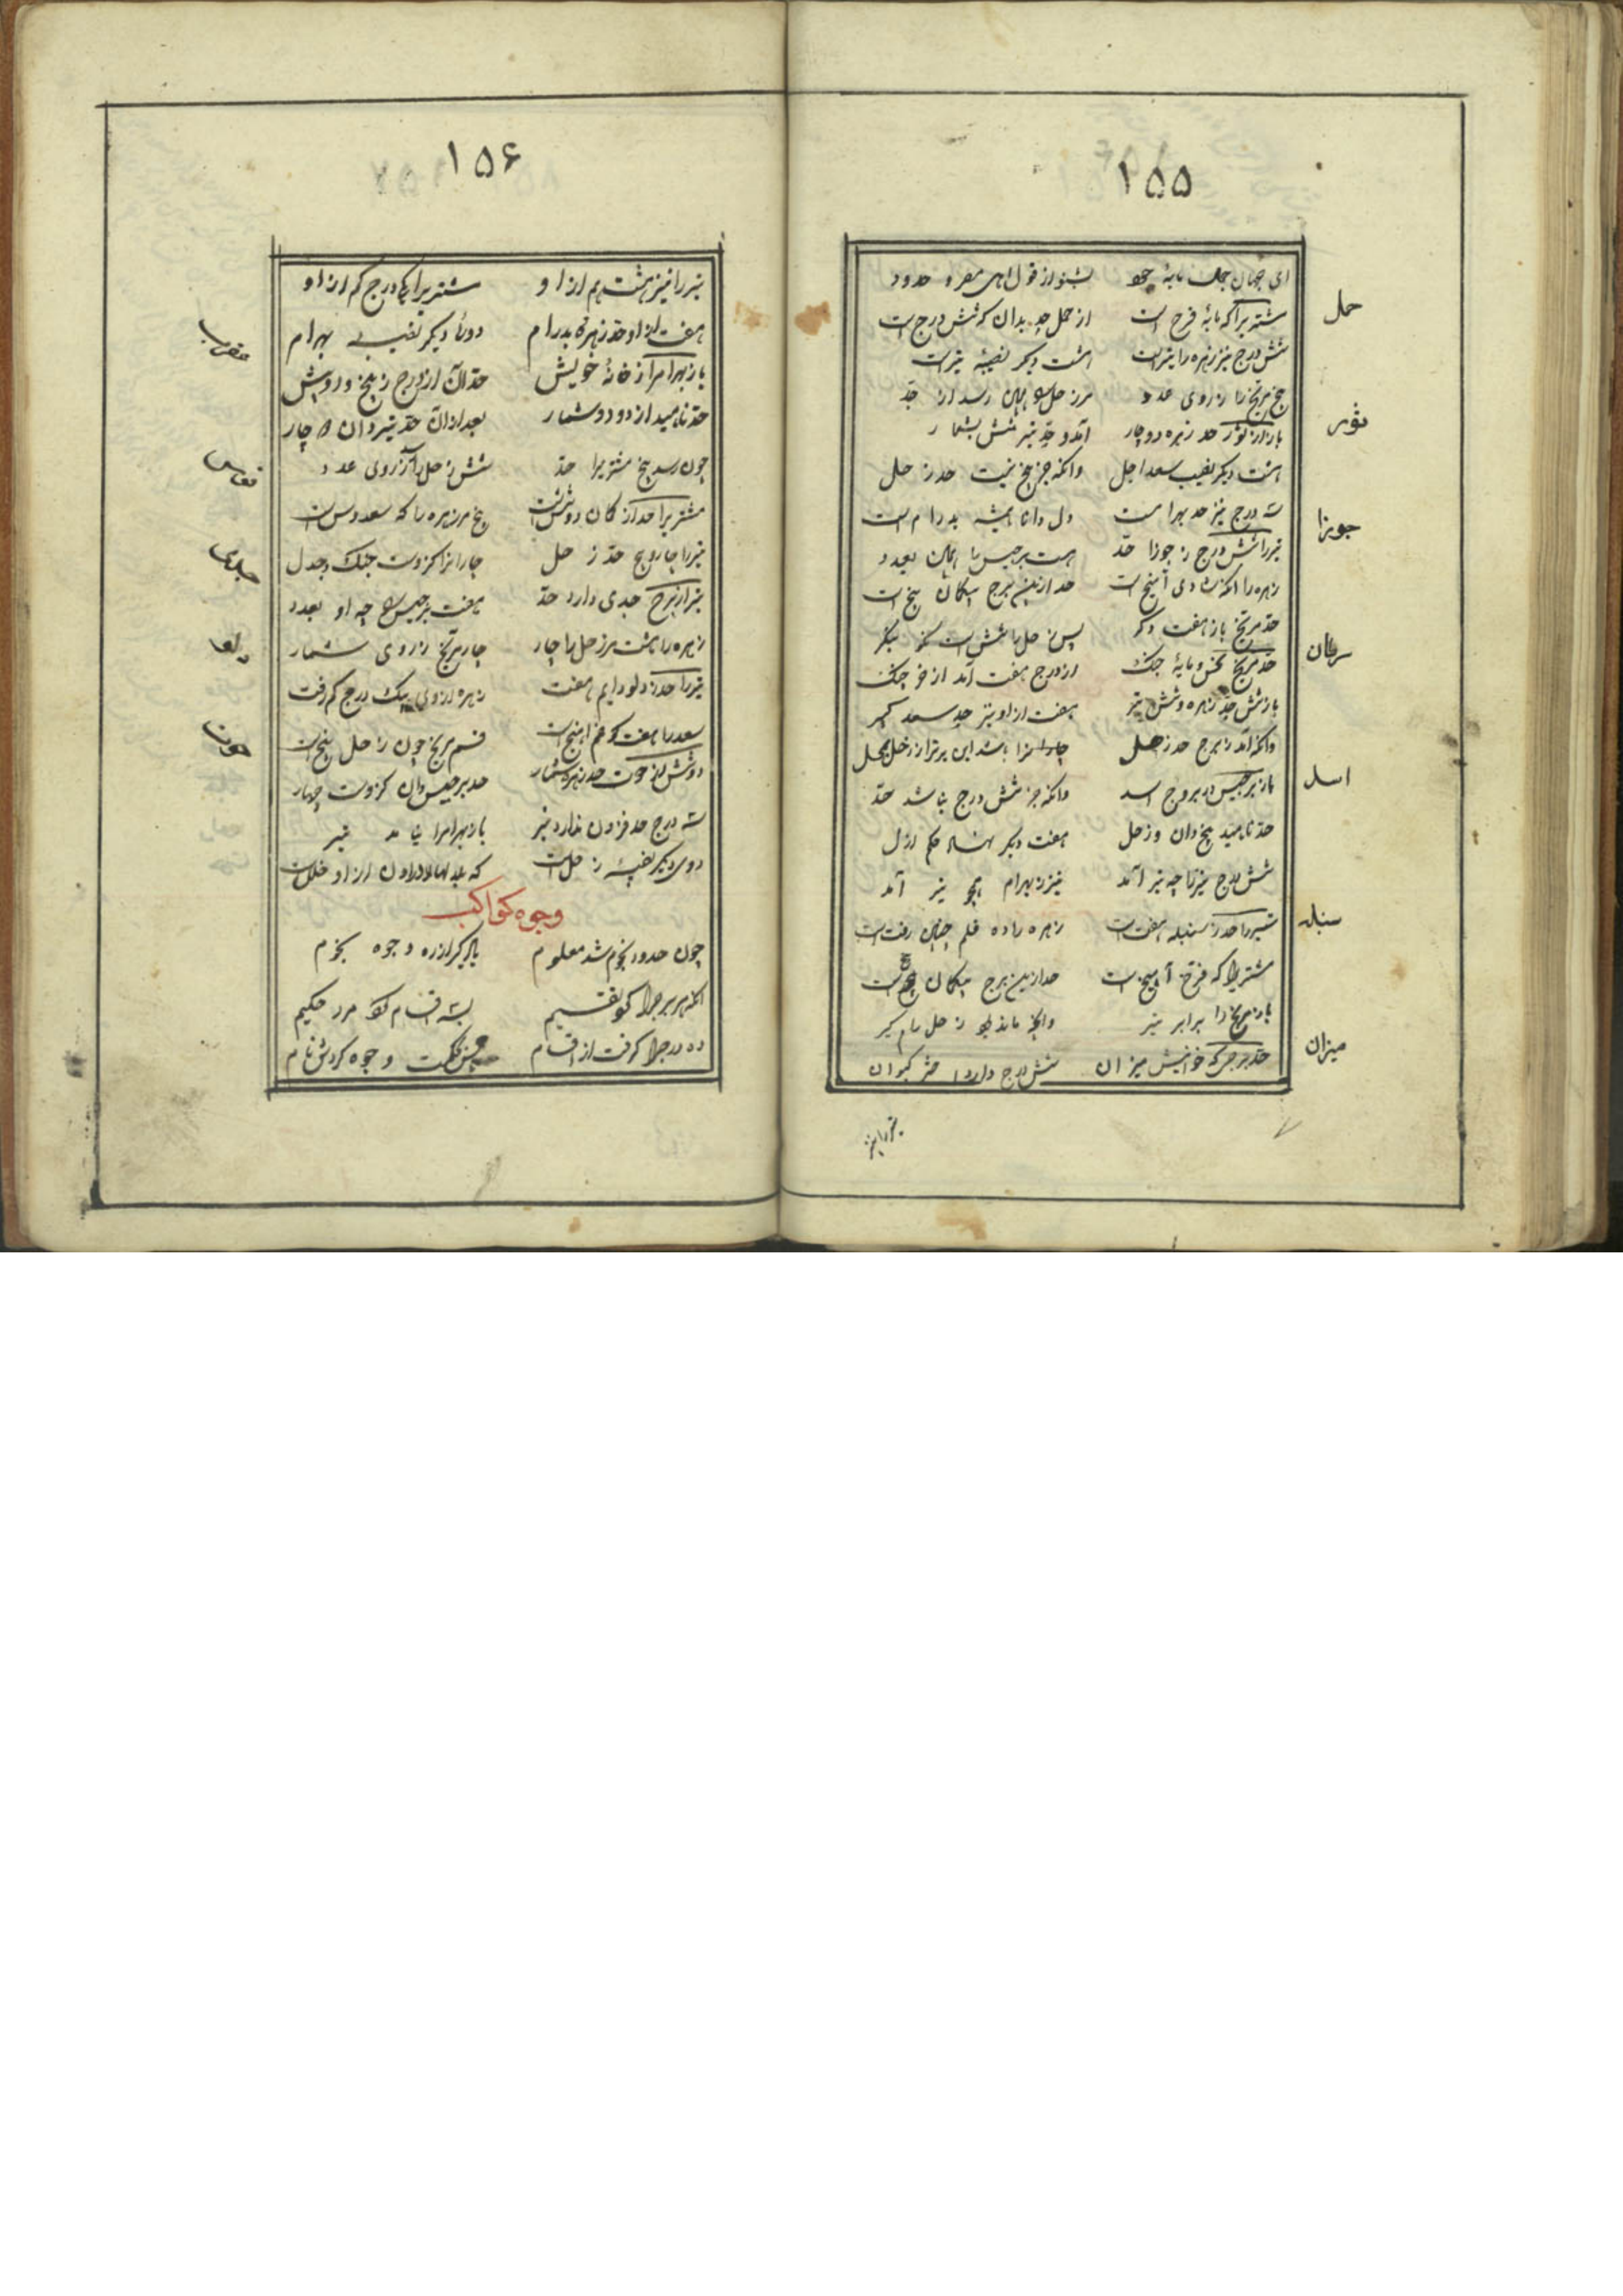 ۱۵۵
ای جهان جلال مایهٔ جود بشنو از قول اهل مصر و حدود
حمل
مشتریرا که مایهٔ فرح است از حمل حد بدان که شش درج است
شش درج نیز زهره را تیر است هشت دیگر نصیبهٔ تیر است
پنج مریخ را ز روی عدد مر زحل را همان رسد از حد
ثور
باز از ثور حد زهره دو چار آمد و حد تیر شش بشمار
هشت دیگر نصیب سعد اجل وانکه جز پنج نیست حد زحل
سه درج نیز حد بهرامست دل دانا همیشه بدرام است
جوزا
تیر را شش درج ز جوزا حد هست برجیس را همان بعدد
زهره را آنکه شادی آهنج است حد ازین برج بیگمان پنج است
حد مریخ باز هفت دگر پس زحل را شش است نکو بنگر
سرطان
حد مریخ نحس و مایهٔ جنگ از درج هفت آمد از خرچنگ
باز شش حد زهره و شش تیر هفت از او نیز حد سعد کبیر
وانکه آمد ز برج حد زحل چار
اسد
باز برجیس در بروج اسد وانکه جز شش درج نباشد حد
حد ناهید پنج دان و زحل هفت دیگر نهاد حکم ازل
شش درج نیز تا چه نیز آمد نیز بهرام همچو تیر آمد
سنبله
تیر را حد ز سنبله هفت است زهره را ده قلم چنین رفت است
مشتریرا که فرخ آهنج است حد ازین برج بیگمان پنج است
باز مریخ را برابر تیر وانچه ماند بدو زحل را گیر
میزان
حد برجی که خوانیش میزان شش درج دارد اختر کیوان
تیر را نیز
۱۵۶
تیر را نیز هشت هم از او مشتریرا یکی درج کم از او
عقرب
هفت از او حد زهره بدرام دو تا دیگر نصیب بهرام
باز بهرام را ز خانهٔ خویش حد آن از درج ز پنج دو بیش
حد ناهید از دو دو شمار بعد از آن حد تیر دان دو چار
قوس
چون رسد پنج مشتریرا حد شش زحل را رسد ز روی عدد
مشتریرا حد از کمان دو شش است پنج مر زهره را که سعدوش است
تیر را چار و پنج حد ز حل چار آنرا کزوست جنگ و جدل
جدی
تیر از برج جدی دارد حد هفت برجیس چه او بعدد
زهره را هشت مر زحل را چار چار مریخ ز روی شمار
دلو
تیر را حد ز دلو دایم هفت زهره از وی بیک درج کم رفت
سعد را هفت قسم مریخ چون زحل پنج است
حوت
دو شش از حوت حد زهره شمار حد برجیس دان کزوست چهار
سه درج حد فزون ندارد تیر باز بهرام را
دوی دیگر نصیبهٔ زحل است که
وجوه کواکب
چون حدود نجوم شد معلوم یاد گیر از ره وجوه نجوم
آنکه هر برج را کند تقسیم بسه اقسام کند مرد حکیم
ده درج را گرفت از اقسام وجوه کردش نام